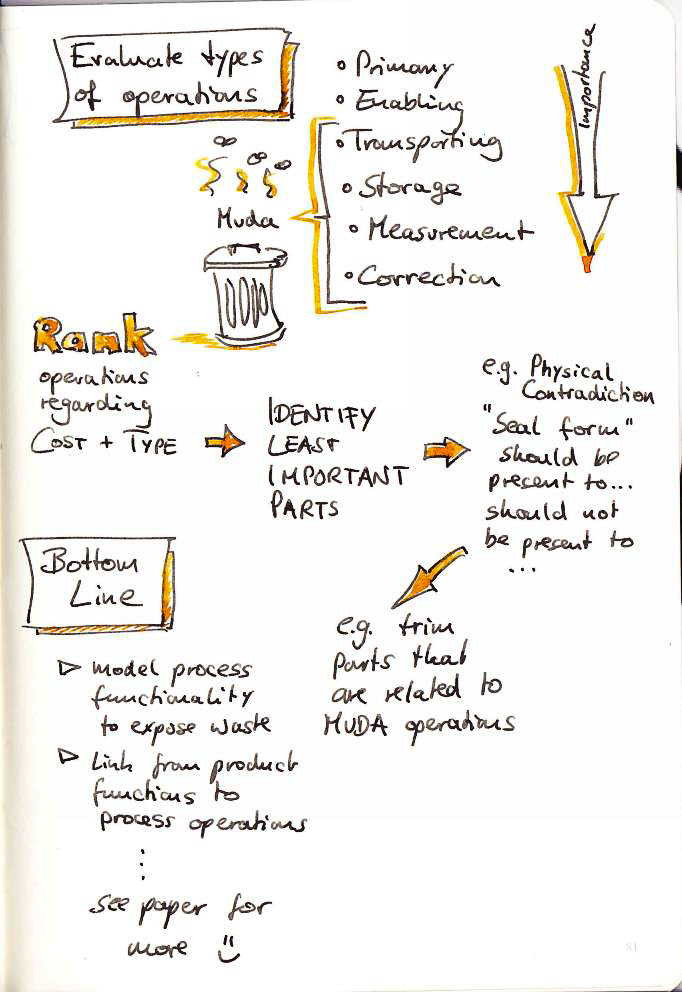 Evaluate types
of operations
• Primary
• Enabling
• Transporting
• Storage
• Measurement
• Correction
Importance
Muda
Rank
operations
regarding
COST + TYPE
IDENTIFY
LEAST
IMPORTANT
PARTS
e.g. Physical
Contradiction
"Seal form"
should be
present to...
should not
be present to
...
e.g. trim
parts that
are related to
MUDA operations
Bottom
Line
▷ model process
functionality
to expose waste
▷ Link from product
functions to
process operations
⋮
see paper for
more ü
81